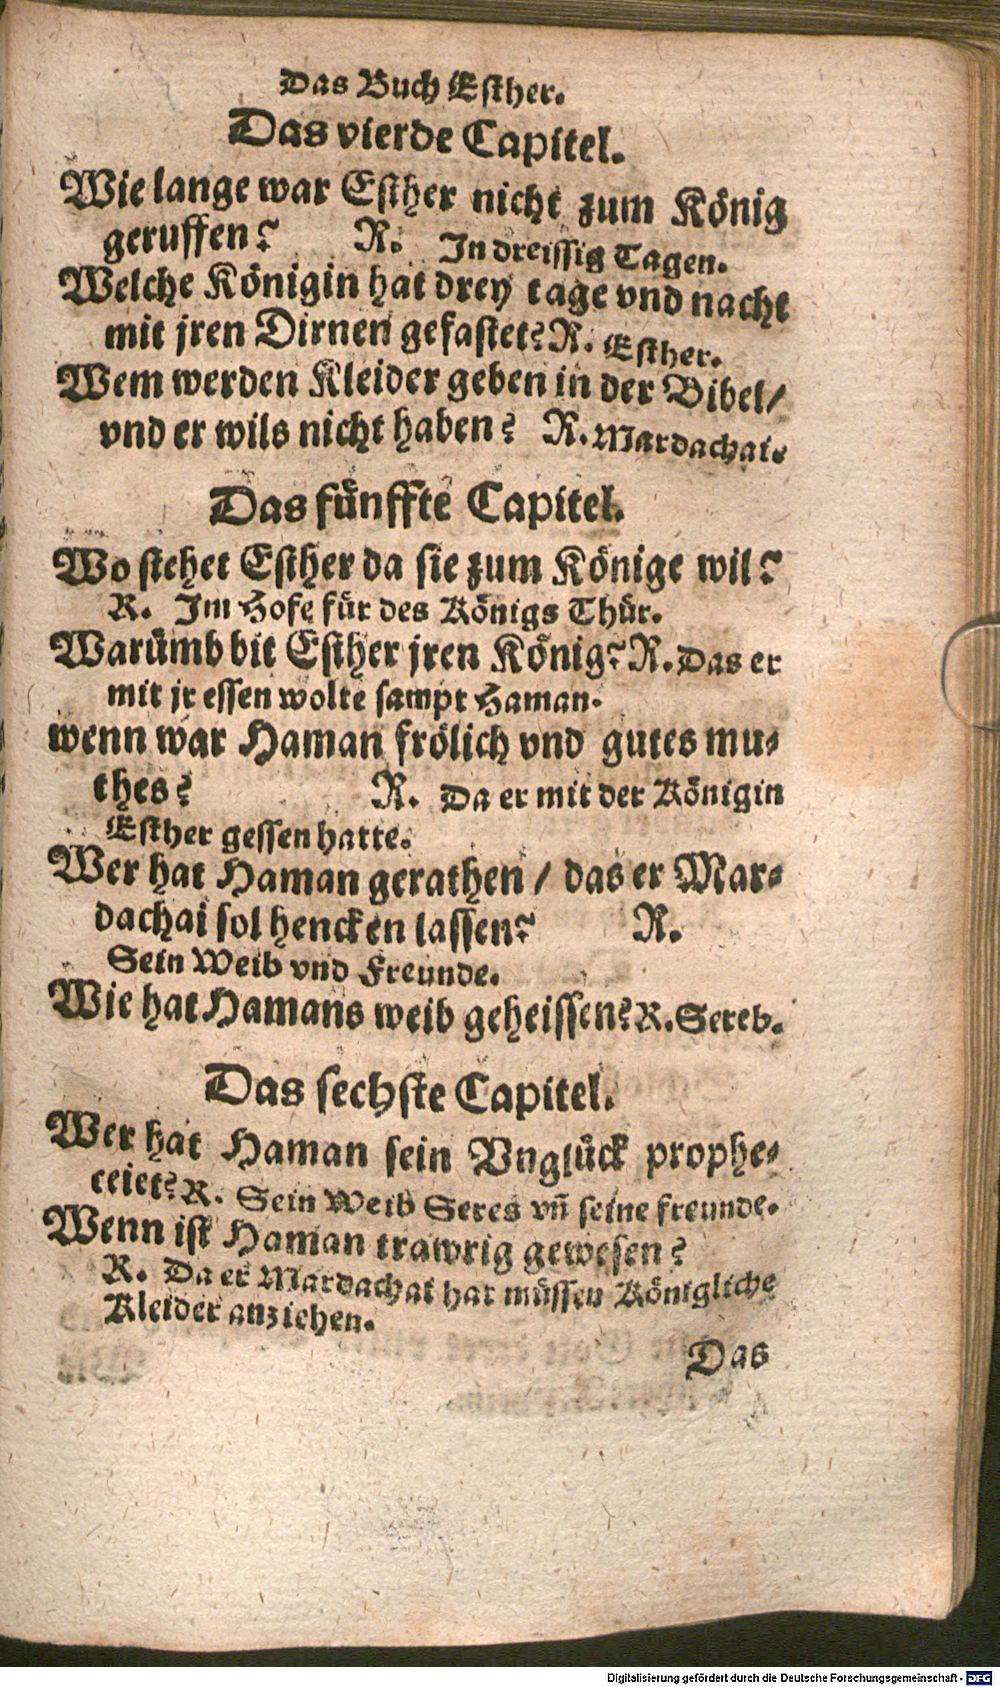 Das Buch Esther.
Das vierde Capitel.
Wie lange war Esther nicht zum König
geruffen? R. In dreissig Tagen.
Welche Königin hat drey tage vnd nacht
mit jren Dirnen gefastet? R. Esther.
Wem werden Kleider geben in der Bibel/
vnd er wils nicht haben? R. Mardachai.
Das fünffte Capitel.
Wo stehet Esther da sie zum Könige wil?
R. Im Hofe für des Königs Thür.
Warümb bit Esther jren König? R. Das er
mit jr essen wolte sampt Haman.
wenn war Haman frölich vnd gutes mu-
thes? R. Da er mit der Königin
Esther gessen hatte.
Wer hat Haman gerathen / das er Mar-
dachai sol hencken lassen? R.
Sein Weib vnd Freunde.
Wie hat Hamans weib geheissen? R. Sereb.
Das sechste Capitel.
Wer hat Haman sein Vnglück prophe-
ceiet? R. Sein Weib Seres vñ seine freunde.
Wenn ist Haman trawrig gewesen?
R. Da er Mardachai hat müssen Königliche
Kleider anziehen.
Das
Digitalisierung gefördert durch die Deutsche Forschungsgemeinschaft - DFG